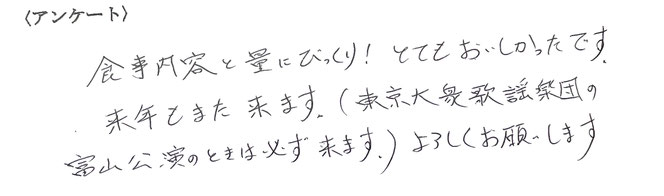 〈アンケート〉
食事内容と量にびっくり! とてもおいしかったです.
来年もまた来ます.(東京大衆歌謡楽団の
富山公演のときは必ず来ます.)よろしくお願いします